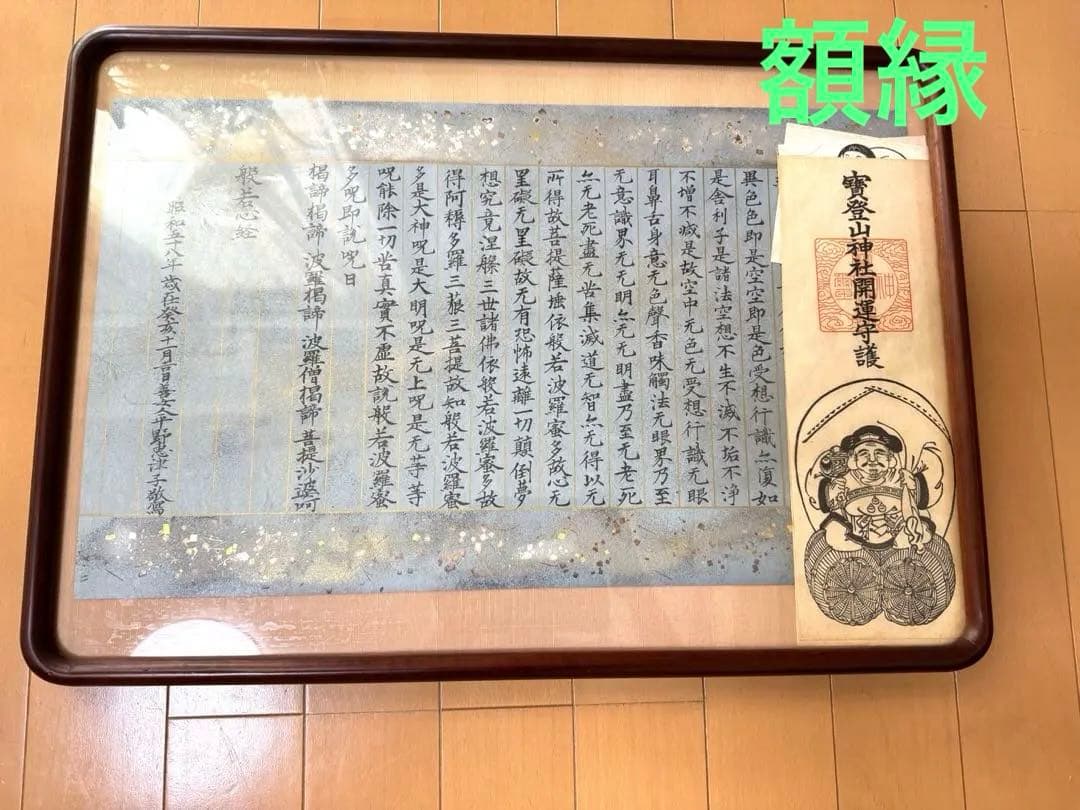 額縁
寶登山神社開運守護
異色色即是空空即是色受想行識亦復如
是舎利子是諸法空想不生不滅不垢不浄
不增不减是故空中无色无受想行識无眼
耳鼻舌身意无色聲香味觸法无眼界乃至
无意識界无无明亦无无明盡乃至无老死
亦无老死盡无苦集滅道无智亦无得以无
所得故菩提薩埵依般若波羅蜜多故心无
罣礙无罣礙故无有恐怖遠離一切顛倒夢
想究竟涅槃三世諸佛依般若波羅蜜多故
得阿耨多羅三藐三菩提故知般若波羅蜜
多是大神呪是大明呪是无上呪是无等等
呪能除一切苦真實不虚故説般若波羅蜜
多呪即説呪曰
揭諦揭諦 波羅揭諦 波羅僧揭諦 菩提沙婆呵
般若心経
昭和五十八年歳在癸亥十月吉日善女人平野恵津子敬寫